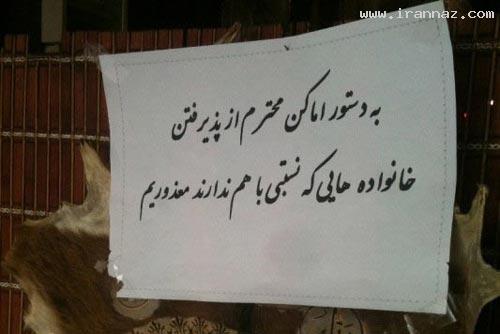 www.irannaz.com
به دستور اماکن محترم از پذیرفتن
خانواده هایی که نسبتی با هم ندارند معذوریم